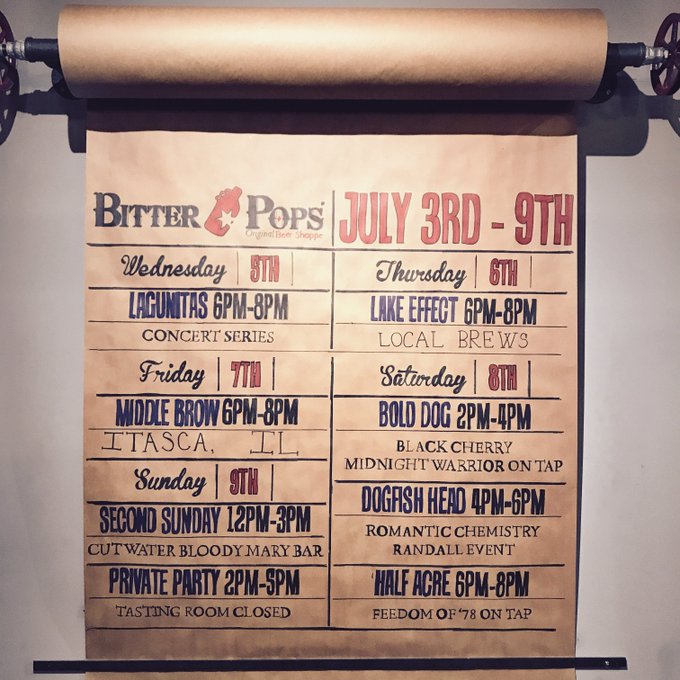 BITTER POPS
Original Beer Shoppe
JULY 3RD - 9TH
Wednesday 5TH
LAGUNITAS 6PM-8PM
CONCERT SERIES
Thursday 6TH
LAKE EFFECT 6PM-8PM
LOCAL BREWS
Friday 7TH
MIDDLE BROW 6PM-8PM
ITASCA, IL
Saturday 8TH
BOLD DOG 2PM-4PM
BLACK CHERRY
MIDNIGHT WARRIOR ON TAP
DOGFISH HEAD 4PM-6PM
ROMANTIC CHEMISTRY
RANDALL EVENT
HALF ACRE 6PM-8PM
FEEDOM OF '78 ON TAP
Sunday 9TH
SECOND SUNDAY 12PM-3PM
CUTWATER BLOODY MARY BAR
PRIVATE PARTY 2PM-5PM
TASTING ROOM CLOSED